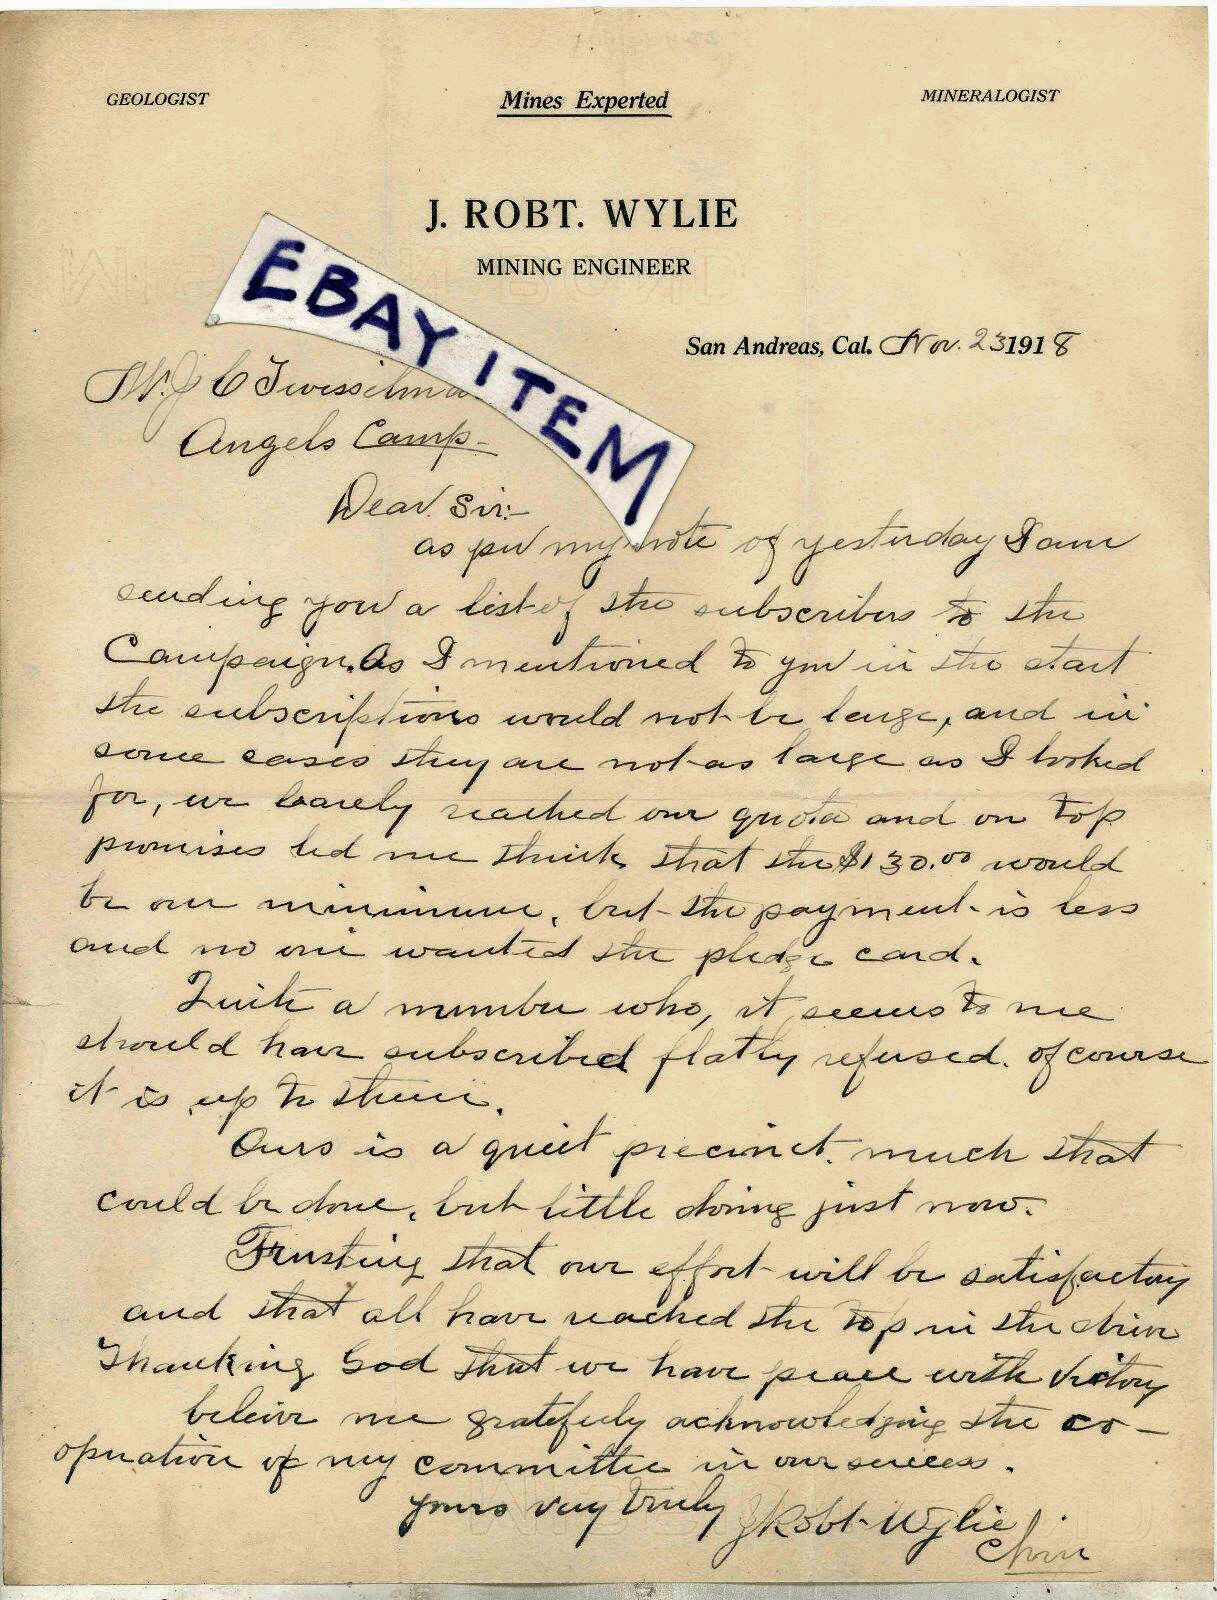 GEOLOGIST Mines Experted MINERALOGIST
J. ROBT. WYLIE
MINING ENGINEER
EBAY ITEM
San Andreas, Cal. Nov. 23 1918
C Twisselma
Angels Camp -
Dear Sir:-
as per my note of yesterday I am
sending you a list of the subscribers to the
Campaign. As I mentioned to you in the start
the subscriptions would not be large, and in
some cases they are not as large as I looked
for, we barely reached our quota and on top
promises led me think that the $130.00 would
be our minimum, but the payment is less
and no one wanted the pledge card.
Quite a number who, it seems to me
should have subscribed flatly refused. of course
it is up to them.
Ours is a quiet precinct. much that
could be done, but little doing just now.
Trusting that our effort will be satisfactory
and that all have reached the top in the drive
Thanking God that we have peace with victory
beleive me gratefuly acknowledging the co-
operation of my committee in our success.
yours very truly J Robt. Wylie
Chm